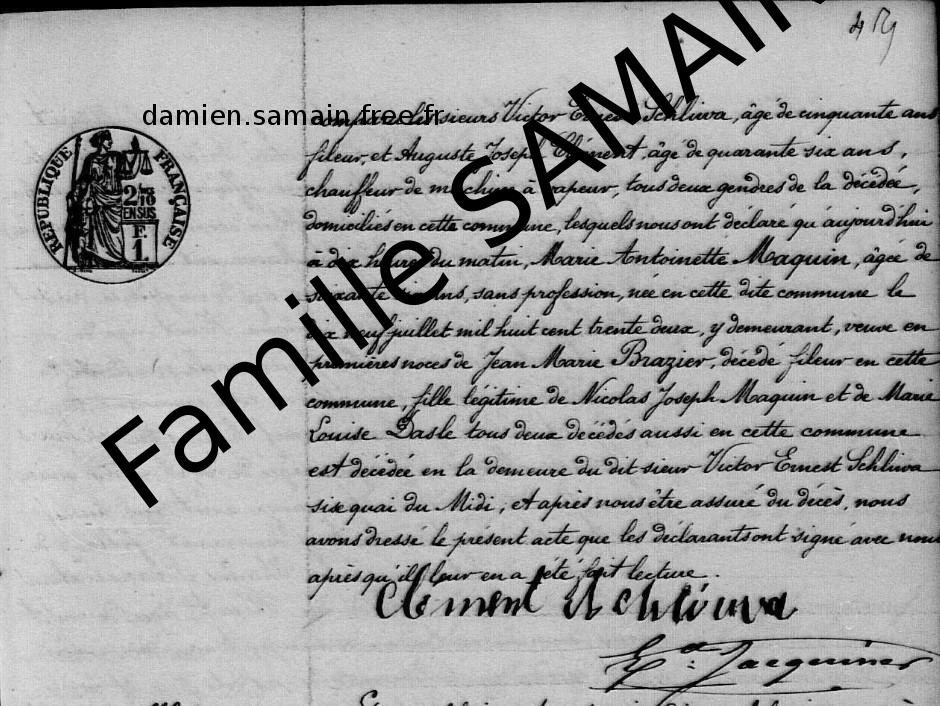 45
damien.samain.free.fr
Famille SAMAIN
RÉPUBLIQUE FRANÇAISE
2/10
EN SUS
F.
1.
comparu les sieurs Victor Ernest Schliwa, âgé de cinquante ans
fileur, et Auguste Joseph Clément, âgé de quarante six ans,
chauffeur de machine à vapeur, tous deux gendres de la décédée,
domiciliés en cette commune, lesquels nous ont déclaré qu'aujourd'hui
à dix heures du matin, Marie Antoinette Maquin, âgée de
soixante ans, sans profession, née en cette dite commune le
dix neuf juillet mil huit cent trente deux, y demeurant, veuve en
premières noces de Jean Marie Brazier, décédé fileur en cette
commune, fille légitime de Nicolas Joseph Maquin et de Marie
Louise Dasle tous deux décédés aussi en cette commune
est décédée en la demeure du dit sieur Victor Ernest Schliwa
sise quai du Midi; et après nous être assuré du décès, nous
avons dressé le présent acte que les déclarants ont signé avec nous
après qu'il leur en a été fait lecture.
Clément Schliwa
Jacquinet